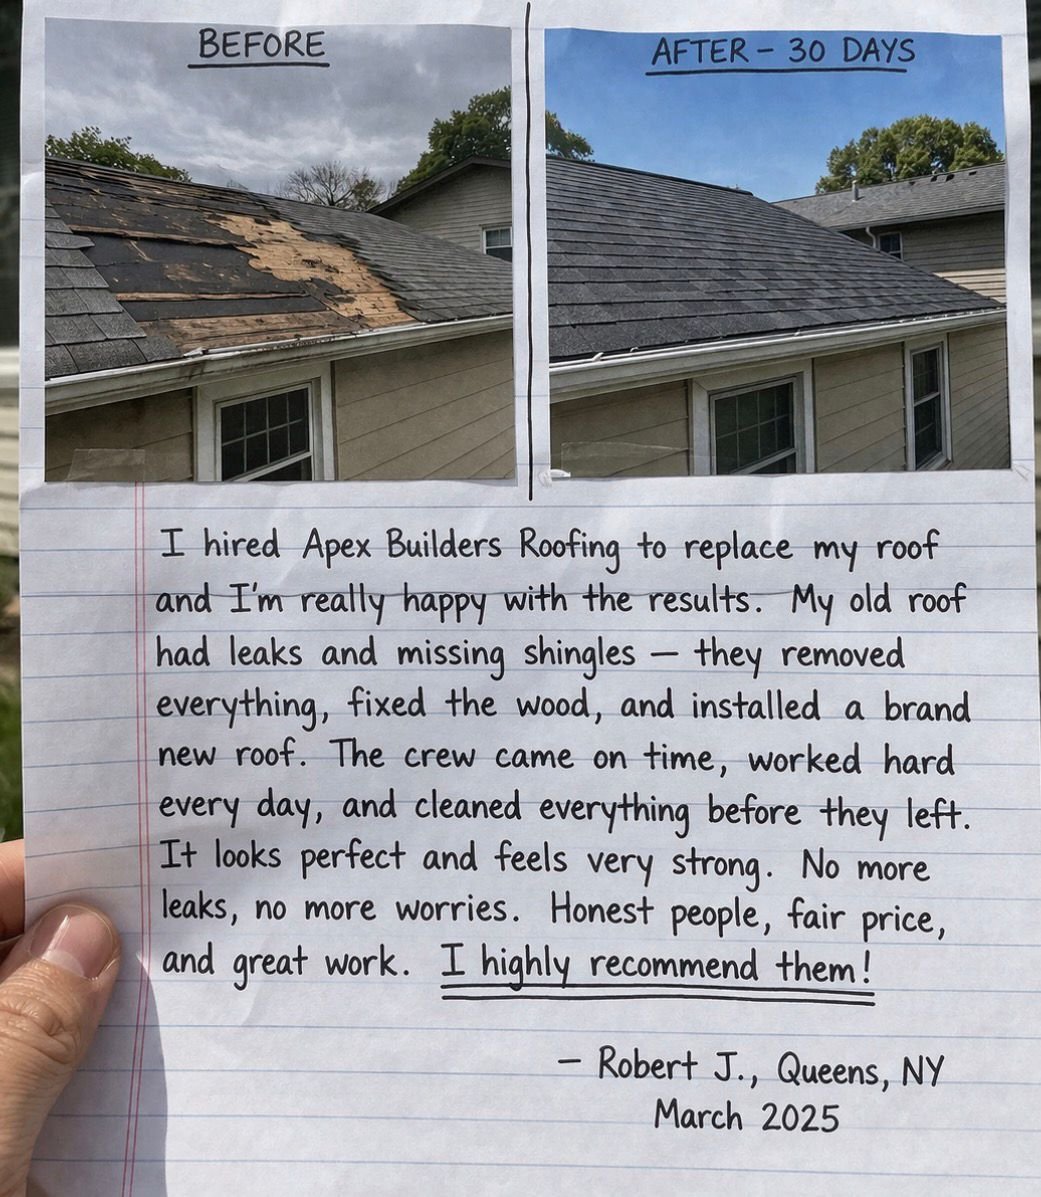 BEFORE
AFTER - 30 DAYS
I hired Apex Builders Roofing to replace my roof
and I'm really happy with the results. My old roof
had leaks and missing shingles — they removed
everything, fixed the wood, and installed a brand
new roof. The crew came on time, worked hard
every day, and cleaned everything before they left.
It looks perfect and feels very strong. No more
leaks, no more worries. Honest people, fair price,
and great work. I highly recommend them!
— Robert J., Queens, NY
March 2025